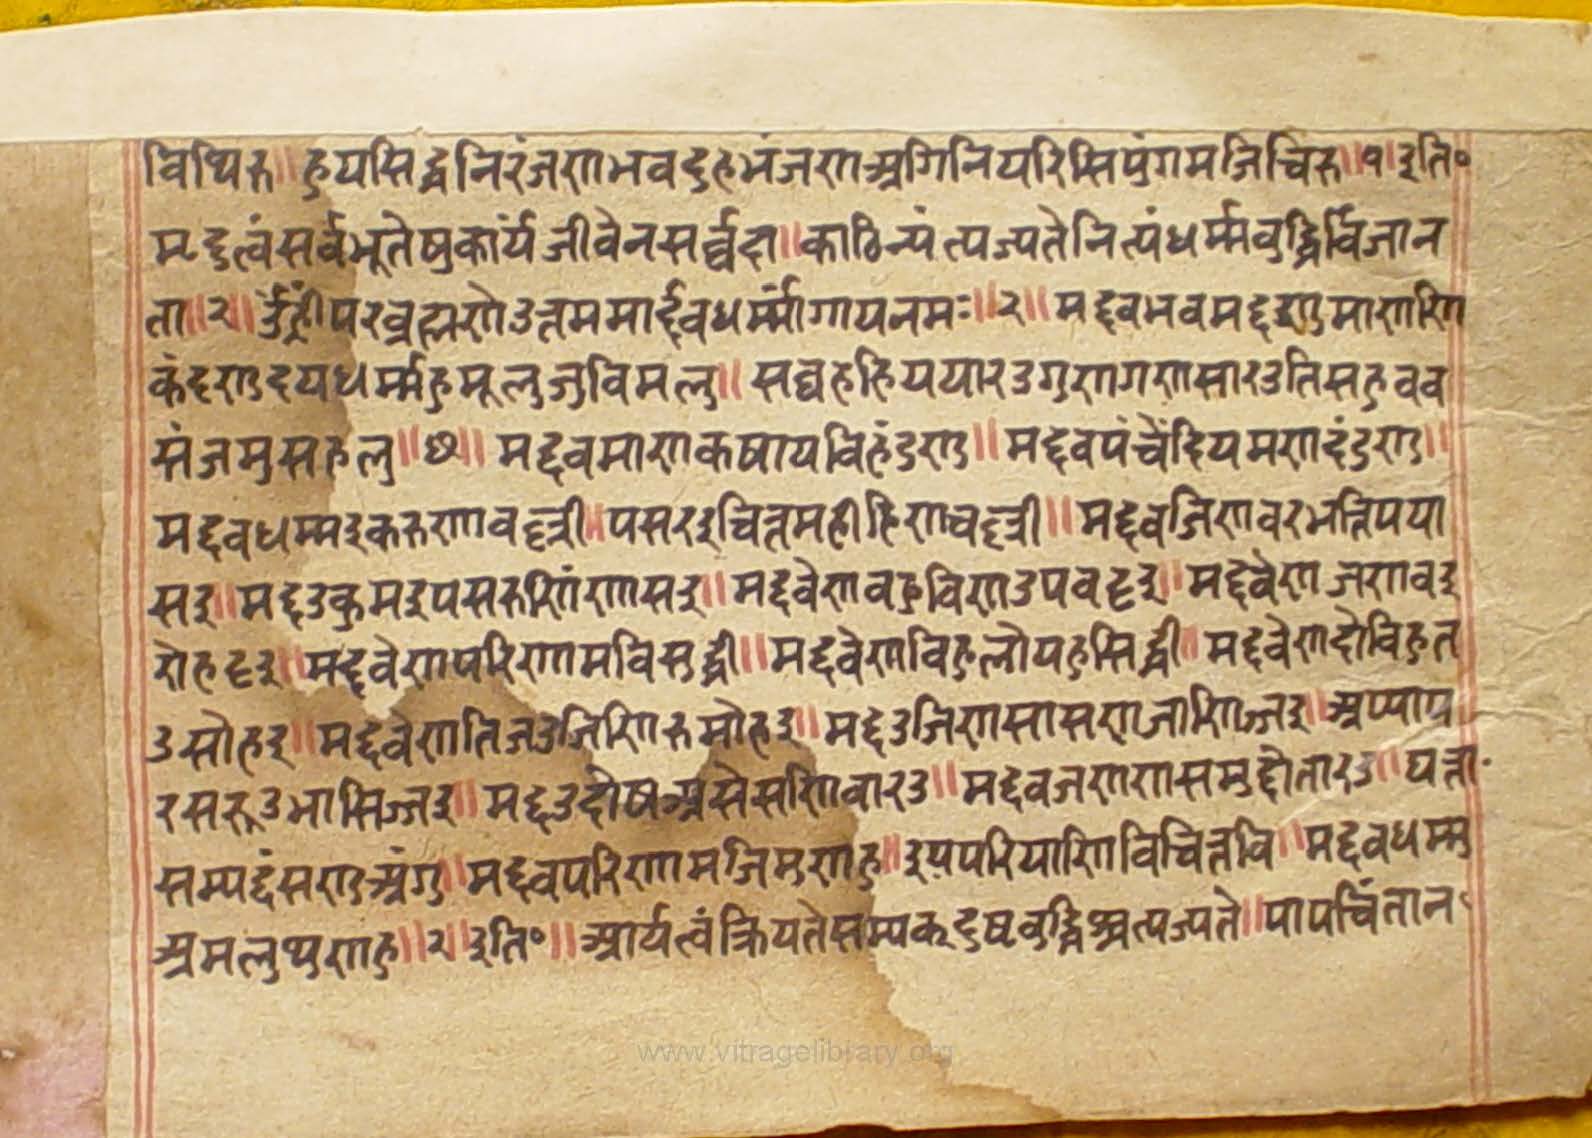 विथिरु॥हुयसिद्धनिरंजणभवदुहभंजणअगिनियरिसिपुंगमजिचिरु॥१॥इति॰
मृदुत्वंसर्वभूतेषुकार्यंजीवेनसर्व्वदा॥काठिन्यंत्यज्यतेनित्यंधर्म्मवुद्धिर्विजान
ता॥२॥ॐह्रींपरव्रह्मणेउत्तममार्द्दवधर्म्मांगायनमः॥२॥मद्दवभवमद्दणुमाणणि
कंदणुदयधर्म्महुमूलुजुविमलु॥सव्वहहिययारउगुणगणसारउतिसहुवव
संजमुसहलु॥छ॥मद्दवमाणकषायविहंडणु॥मद्दवपंचेंदियमणदंडणु॥
मद्दवधम्मइकरुणवल्ली॥पसरइचित्तमहीहिणवल्ली॥मद्दवजिणवरभत्तिपया
सइ॥मद्दउकुमइपसरुणिंणासइ॥मद्दवेणवहुविणउपवट्टइ॥मद्दवेणजणवइ
रोहट्टइ॥मद्दवेणपरिणामविसुद्धी॥मद्दवेणविहुलोयहसिद्धी॥मद्दवेणदोविहुत
उसोहइ॥मद्दवेणतिजउजिणिरुमोहइ॥मद्दउजिणसासणजाणिज्जइ॥अप्पाप
रसरूउभासिज्जइ॥मद्दउदोषअसेसणिवारउ॥मद्दवजणणसमुद्दोतारउ॥घत्ता॰
सम्पद्दंसणुअंगु॥मद्दवपरिणामजिमुणहु॥इयपरियाणिविचित्तवि॥मद्दवधम्मु
अमलुथुणहु॥२॥इति॰॥आर्यत्वंक्रियतेसम्यक्दुष्टवुद्धिश्चत्यज्यते॥पापचिंतान॰
www.vitragelibrary.org